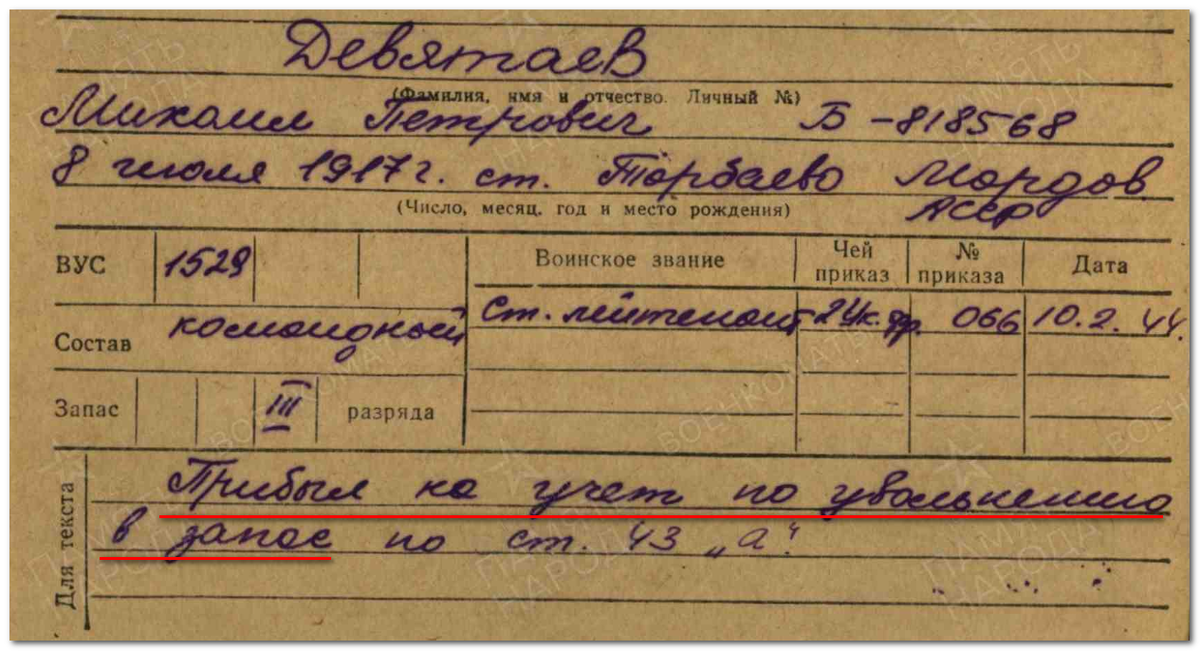 Девятаев
(Фамилия, имя и отчество. Личный №)
Михаил Петрович Б-818568
8 июля 1917 г. ст. Торбаево Мордов.
(Число, месяц, год и место рождения) АССР
ВУС 1529
Воинское звание Чей приказ № приказа Дата
Ст. лейтенант 2 Ук. фр. 066 10.2.44.
Состав командный
Запас III разряда
Для текста
Прибыл на учет по увольнению
в запас по ст. 43 „а".
ПАМЯТЬ НАРОДА
ВОЕНКОМАТЫ